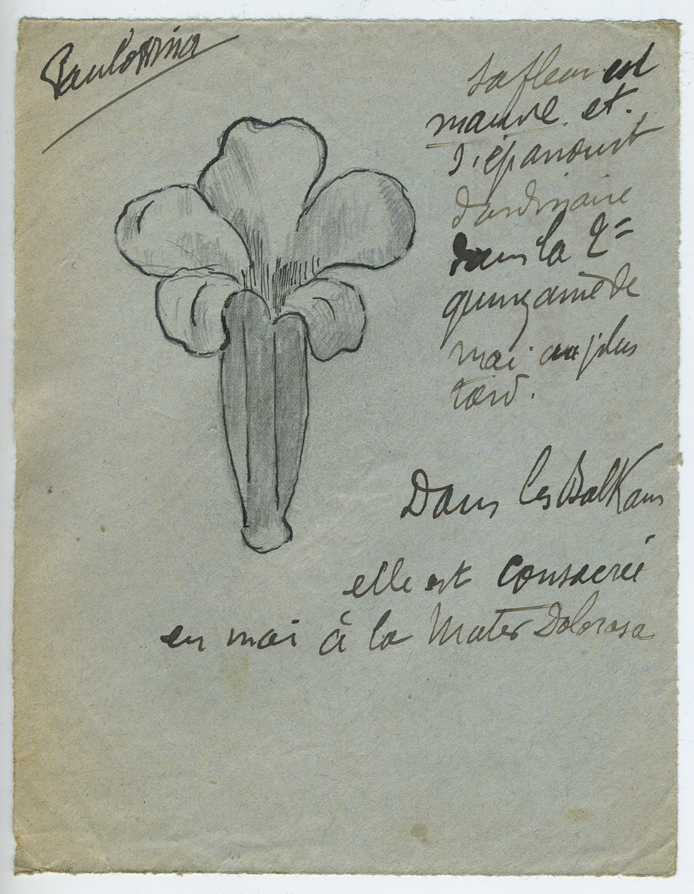 Paulossina
La fleur est
mauve et
s'épanouit
d'ordinaire
dans la 2e
quinzaine de
mai au plus
tard.
Dans les Balkans
elle est consacrée
en mai à la Mater Dolorosa